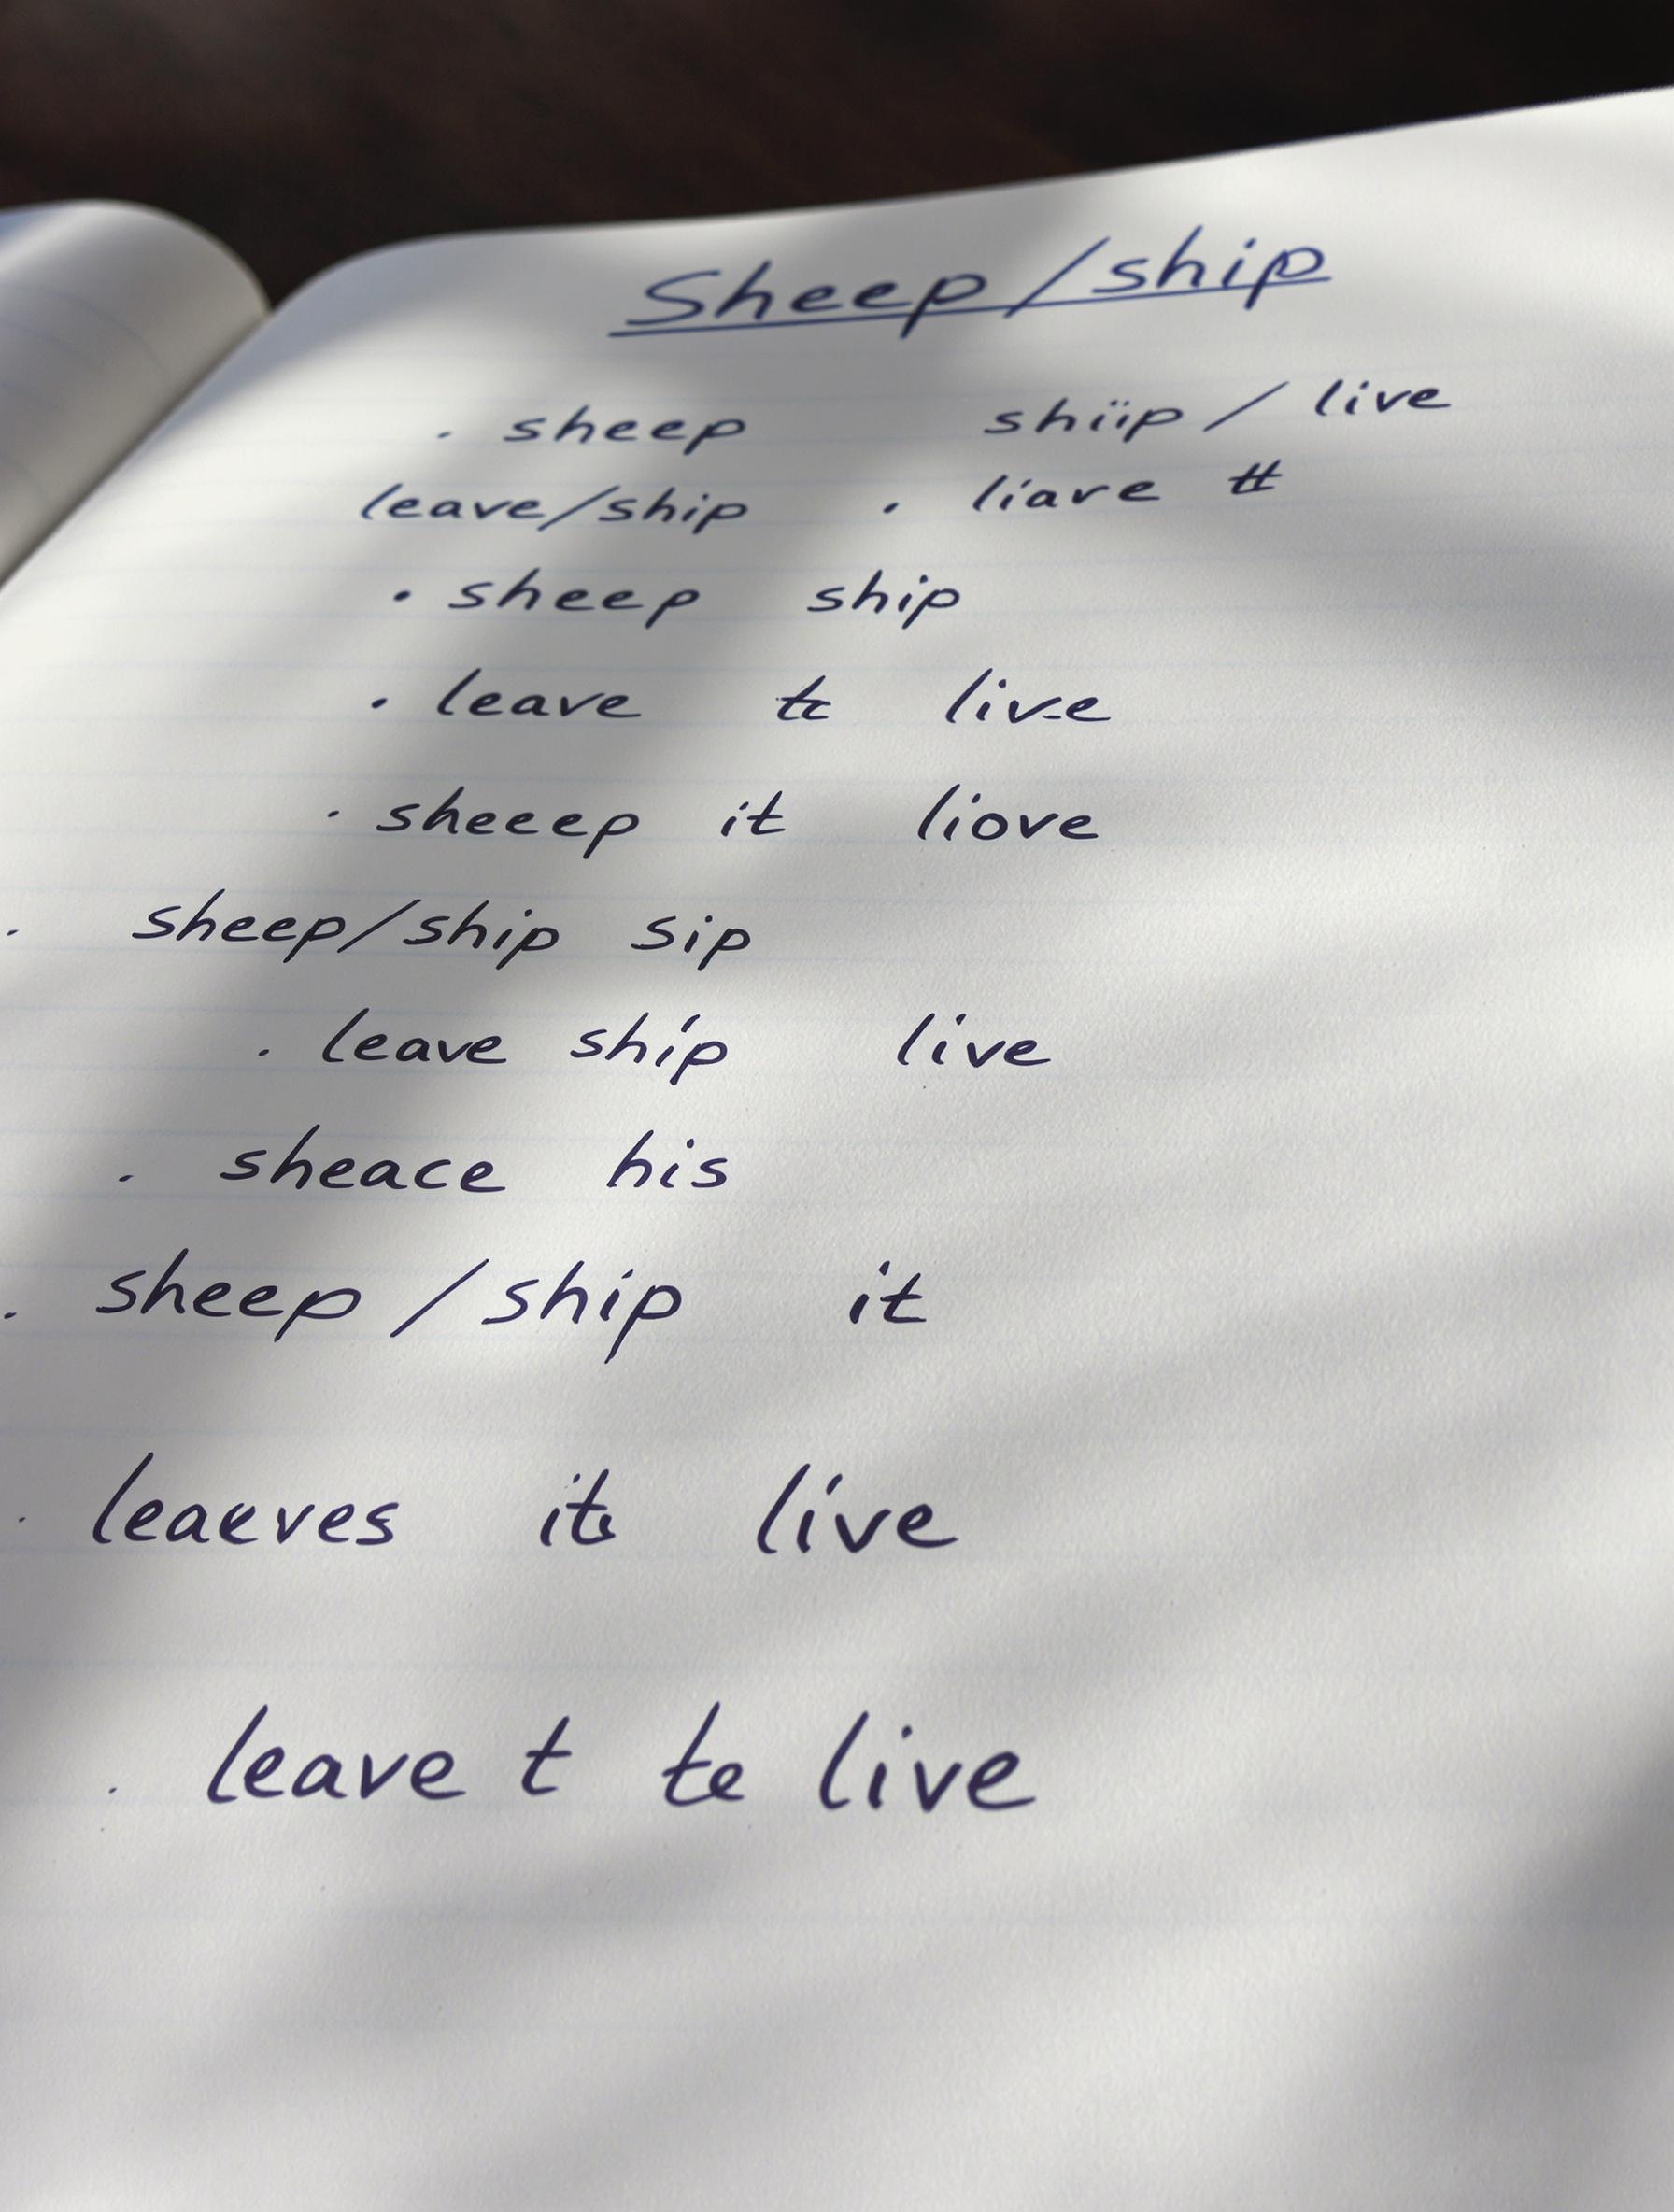 Sheep/ship
. sheep shiip / live
leave/ship . liare tt
• sheep ship
• leave live
. sheeep it liove
. sheep/ship sip
. leave ship live
. sheace his
. sheep / ship it
. leaeves live
. leave t te live